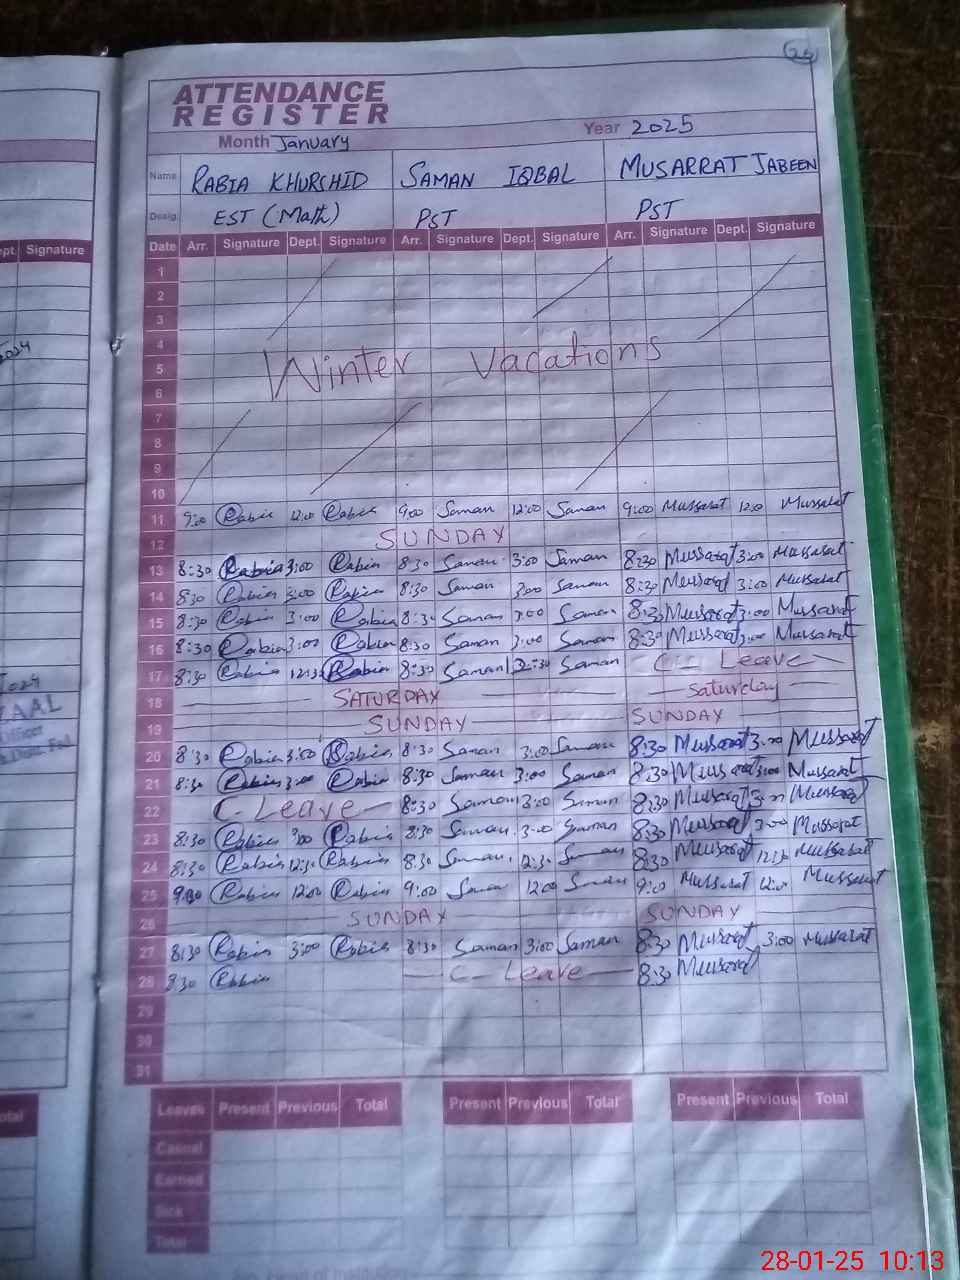 25
ATTENDANCE
REGISTER
Month January Year 2025
Name RABIA KHURSHID SAMAN IQBAL MUSARRAT JABEEN
Desig. EST (Math) PST PST
pt Signature Date Arr. Signature Dept. Signature Arr. Signature Dept. Signature Arr. Signature Dept. Signature
1
2
3
4
2024
5 Winter Vacations
6
7
8
9
10
11 9:00 Rabia 12:00 Rabia 9:00 Saman 12:00 Saman 9:00 Mussarat 12:00 Mussarat
12 SUNDAY
13 8:30 Rabia 3:00 Rabia 8:30 Saman 3:00 Saman 8:30 Mussarat 3:00 Mussarat
14 8:30 Rabia 3:00 Rabia 8:30 Saman 3:00 Saman 8:30 Mussarat 3:00 Mussarat
15 8:30 Rabia 3:00 Rabia 8:30 Saman 3:00 Saman 8:30 Mussarat 3:00 Mussarat
16 8:30 Rabia 3:00 Rabia 8:30 Saman 3:00 Saman 8:30 Mussarat 3:00 Mussarat
17 8:30 Rabia 12:30 Rabia 8:30 Saman 12:30 Saman C- Leave
2024
18 SATURDAY Saturday
ZAAL
19 SUNDAY SUNDAY
Officer
20 8:30 Rabia 3:00 Rabia 8:30 Saman 3:00 Saman 8:30 Mussarat 3:00 Mussarat
21 8:30 Rabia 3:00 Rabia 8:30 Saman 3:00 Saman 8:30 Mussarat 3:00 Mussarat
22 C-Leave 8:30 Saman 3:00 Saman 8:30 Mussarat 3:00 Mussarat
23 8:30 Rabia 3:00 Rabia 8:30 Saman 3:00 Saman 8:30 Mussarat 3:00 Mussarat
24 8:30 Rabia 12:30 Rabia 8:30 Saman 12:30 Saman 8:30 Mussarat 12:30 Mussarat
25 9:00 Rabia 12:00 Rabia 9:00 Saman 12:00 Saman 9:00 Mussarat 12:00 Mussarat
26 SUNDAY SUNDAY
27 8:30 Rabia 3:00 Rabia 8:30 Saman 3:00 Saman 8:30 Mussarat 3:00 Mussarat
28 8:30 Rabia C- Leave 8:30 Mussarat
29
30
31
Leaves Present Previous Total Present Previous Total Present Previous Total
Casual
Earned
Sick
Total
28-01-25 10:13